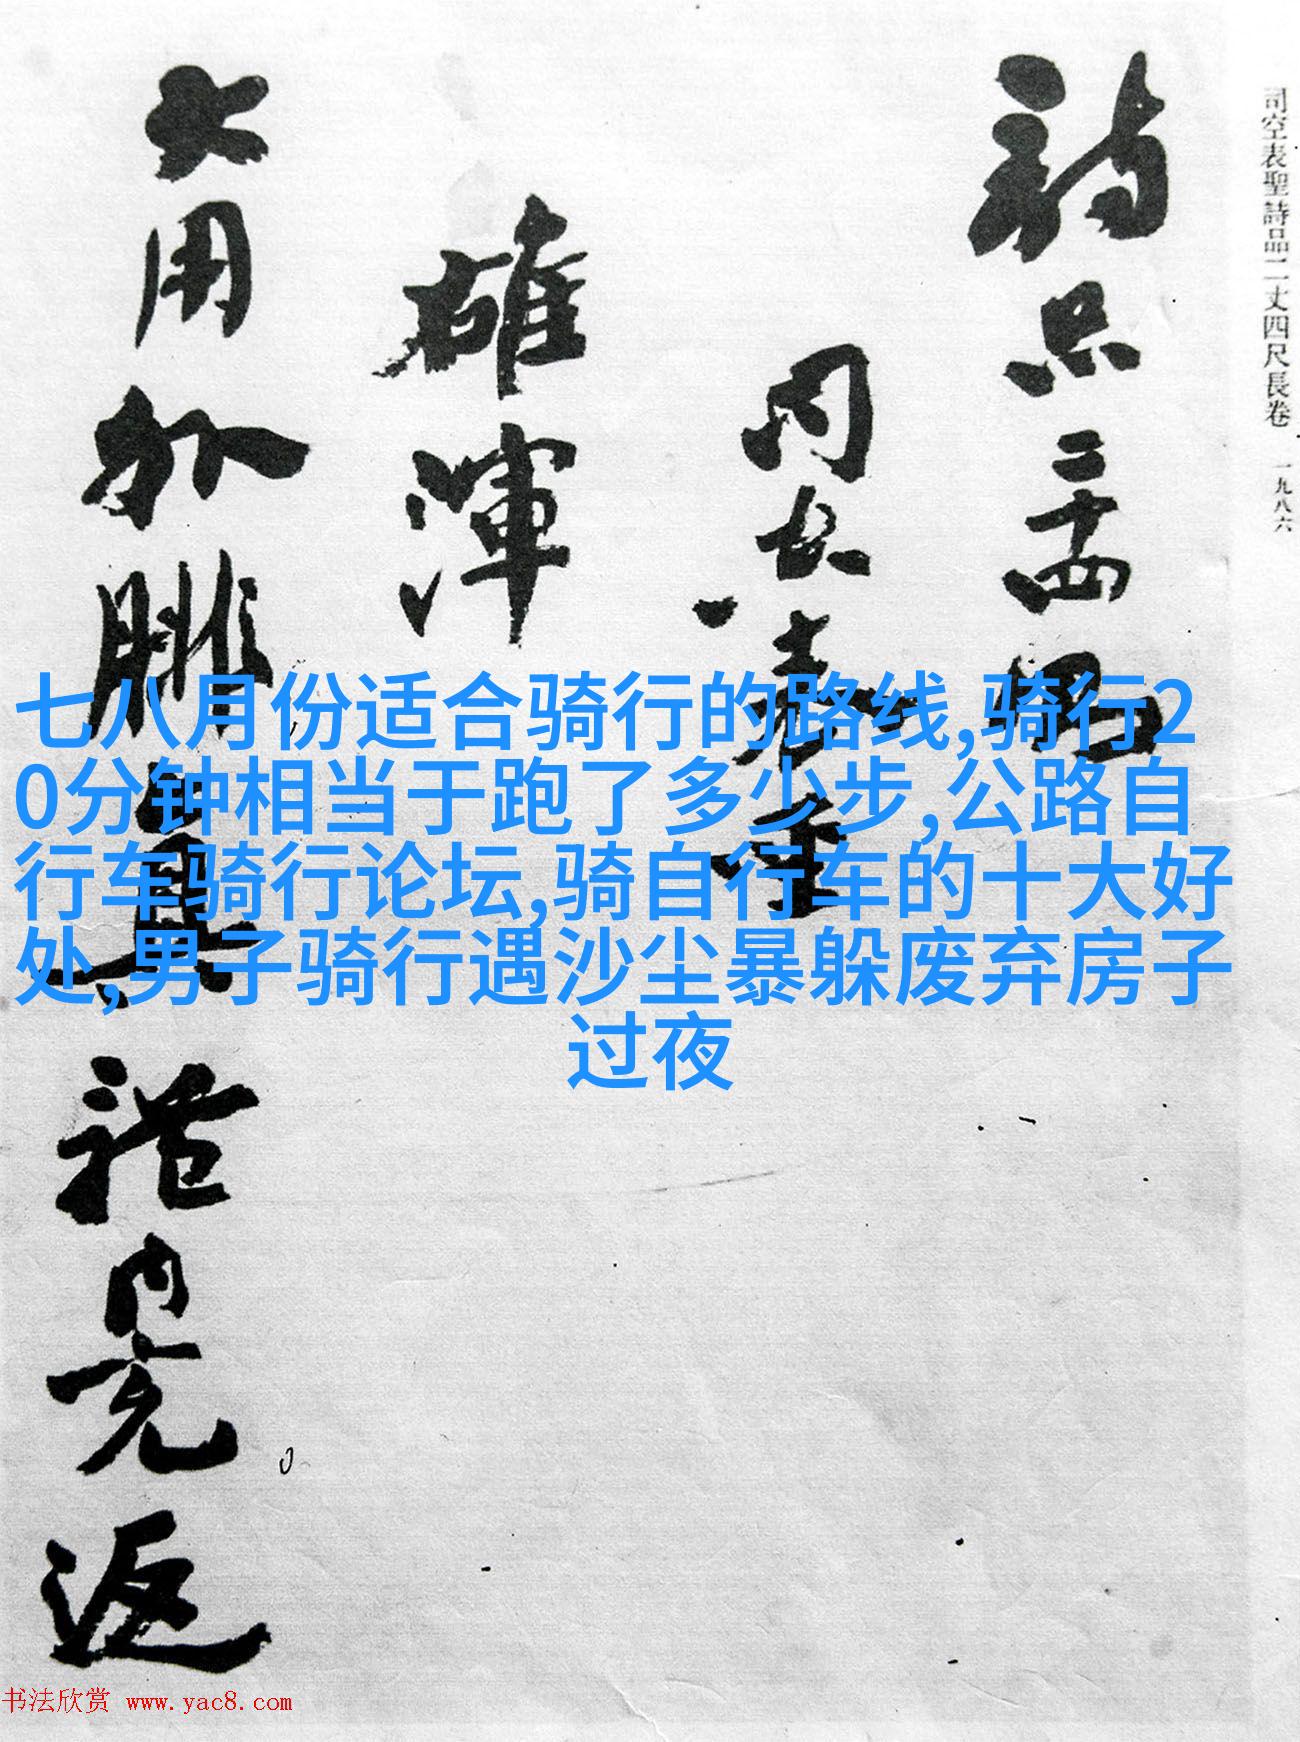 司空表聖詩品二丈四尺長卷 一九八六
詩品二十四
司空表聖
雄渾
大用外腓真體內充返
七八月份适合骑行的路线,骑行2
0分钟相当于跑了多少步,公路自
行车骑行论坛,骑自行车的十大好
处,男子骑行遇沙尘暴躲废弃房子
过夜
书法欣赏 www.yac8.com